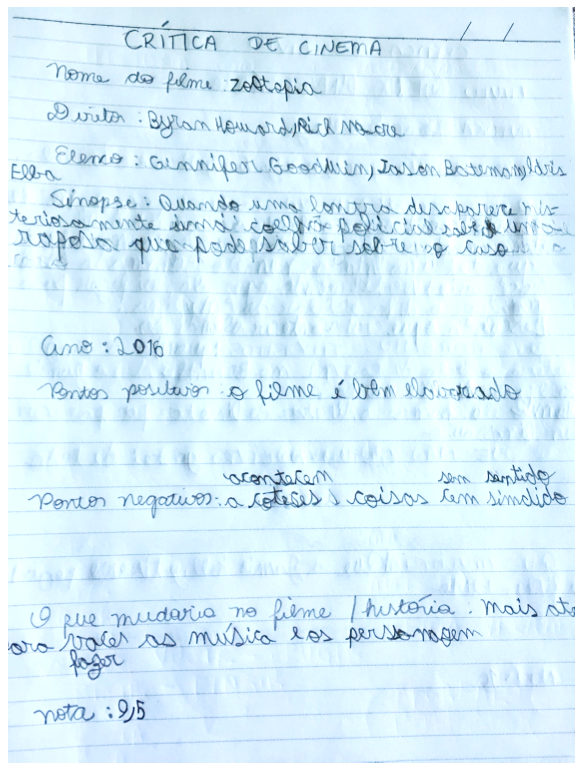 / /
CRÍTICA DE CINEMA
Nome do filme : zootopia
Diretor : Byran Howard, Rich Moore
Elenco : Gennifer Goodwin, Jason Bateman, Idris
Elba
Sinopse : Quando uma lontra desaparece mis-
teriosamente uma coelha policial
raposa que pode saber sobre o caso
Ano : 2016
Pontos positivos : o filme é bem elaborado
acontecem sem sentido
Pontos negativos : a coteces coisas cem simdido
O que mudaria no filme / história . mais
as música e os personagem
fazer
nota : 9,5